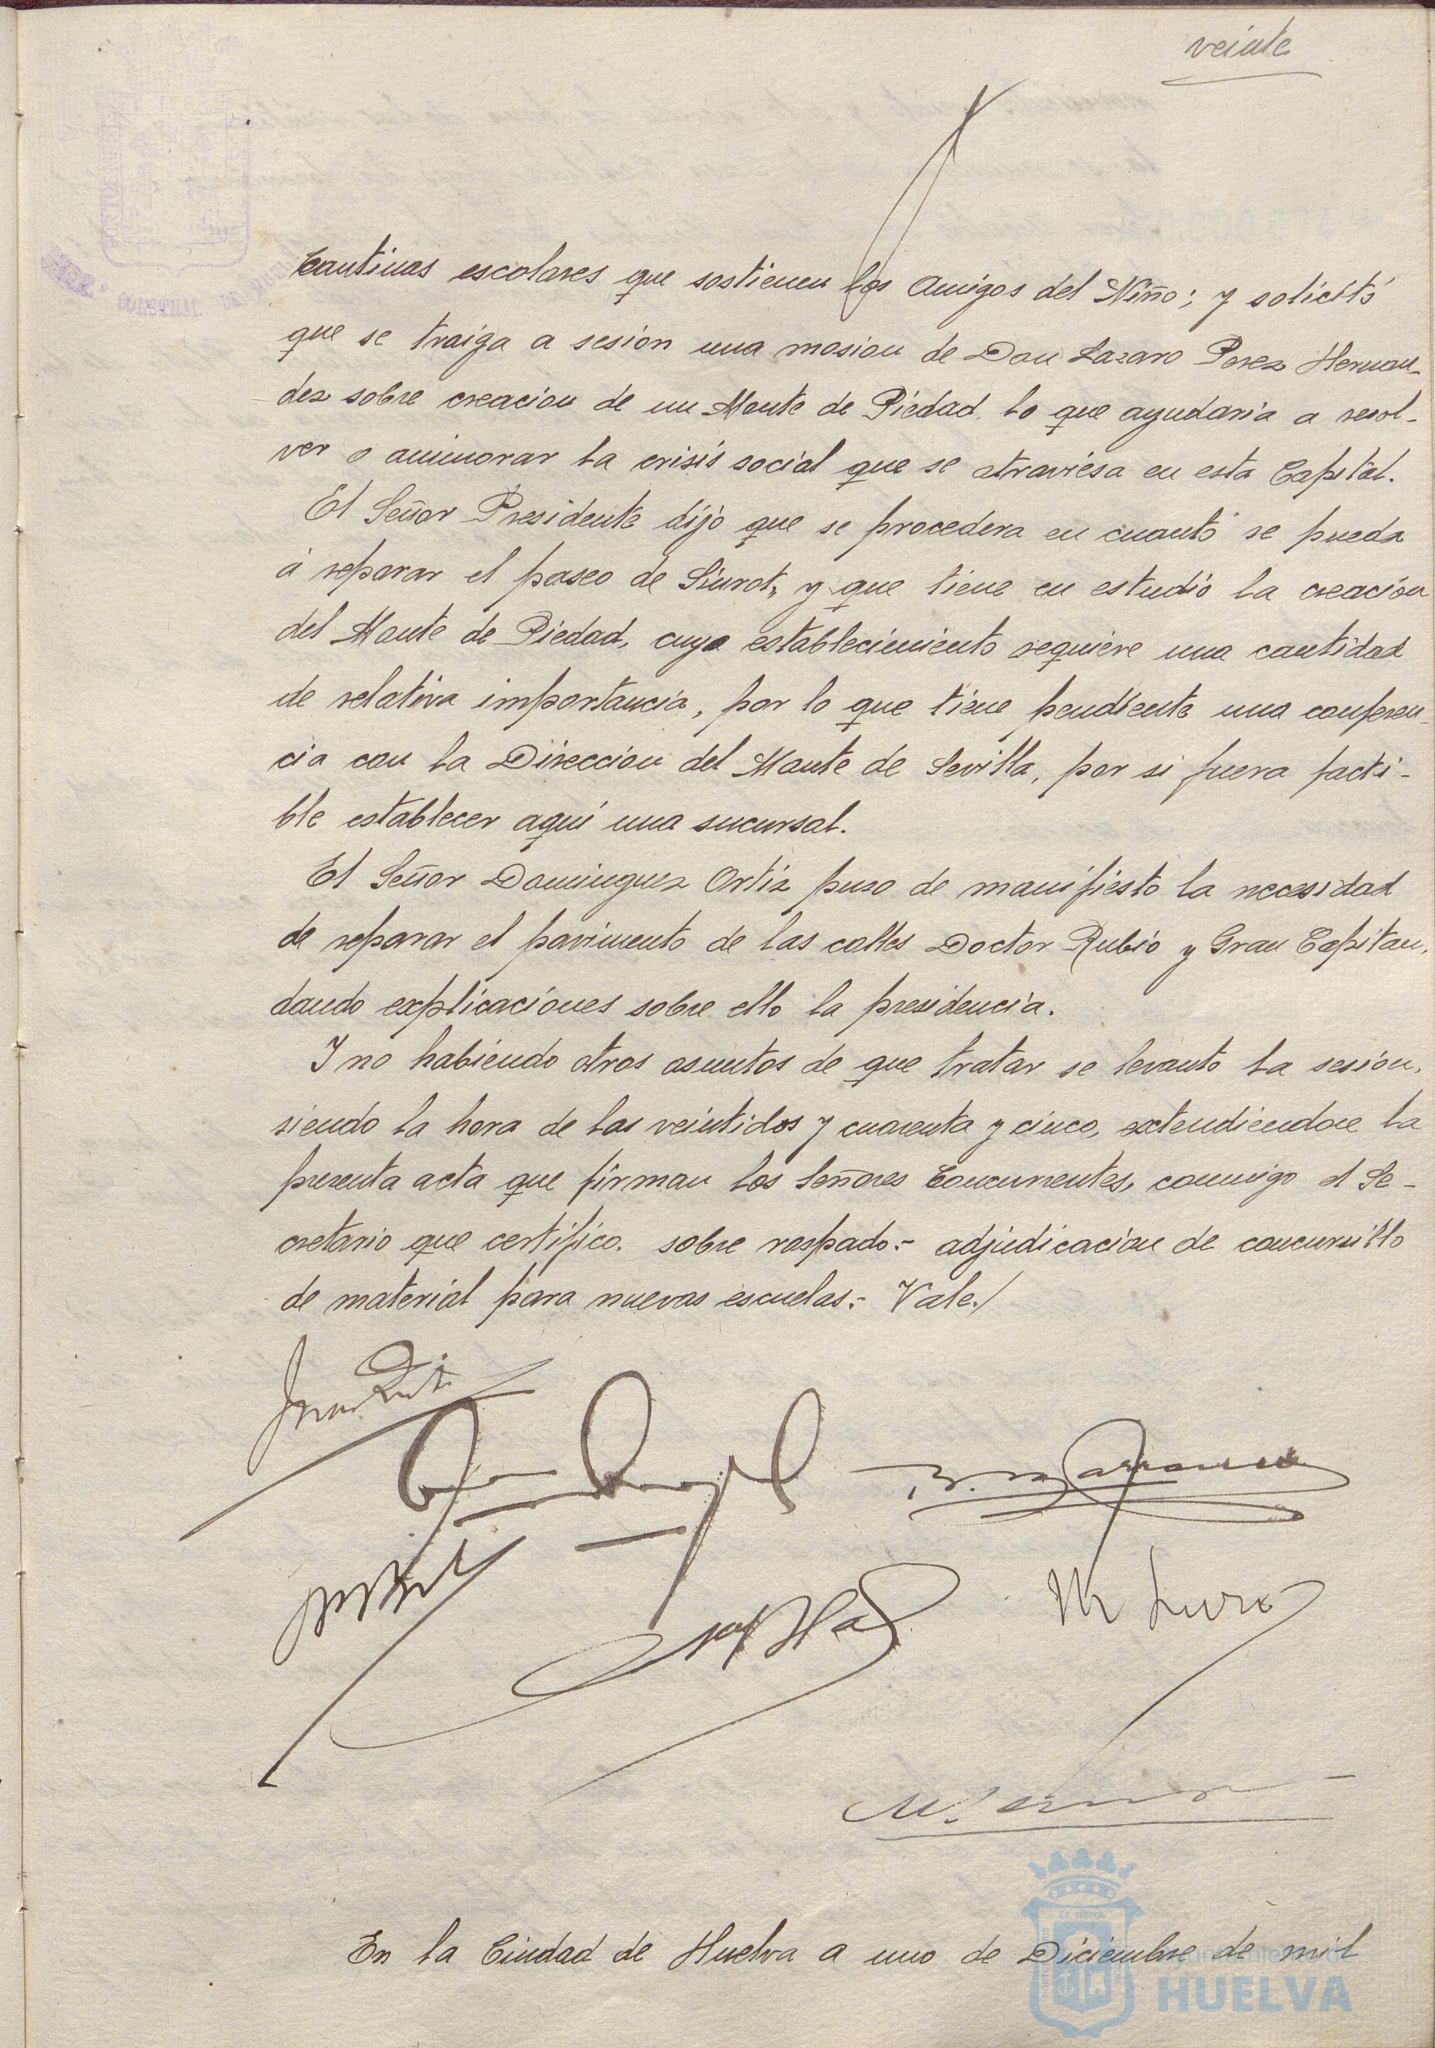 veinte
Cantinas escolares que sostienen los Amigos del Niño; y solicitó
que se traiga a sesion una mosion de Don Lazaro Perez Hernan-
dez sobre creacion de un Monte de Piedad, lo que ayudaria a resol-
ver o aminorar la crisis social que se atraviesa en esta Capital.
El Señor Presidente dijo que se procedera en cuanto se pueda
á reparar el paseo de Siurot, y que tiene en estudio la creación
del Monte de Piedad, cuyo establecimiento requiere una cantidad
de relativa importancia, por lo que tiene pendiente una conferen-
cia con la Direccion del Monte de Sevilla, por si fuera facti-
ble establecer aquí una sucursal.
El Señor Dominguez Ortiz puso de manifiesto la necesidad
de reparar el pavimento de las calles Doctor Rubio y Gran Capitan,
dando explicaciones sobre ello la presidencia.
Y no habiendo otros asuntos de que tratar se levanto la sesión,
siendo la hora de las veintidos y cuarenta y cinco, extendiendose la
presenta acta que firman los Señores Concurrentes, conmigo el Se-
cretario que certifico. sobre raspado:- adjudicacion de concursillo
de material para nuevas escuelas:- Vale./
En la Ciudad de Huelva a uno de Diciembre de mil
Ayuntamiento de
HUELVA